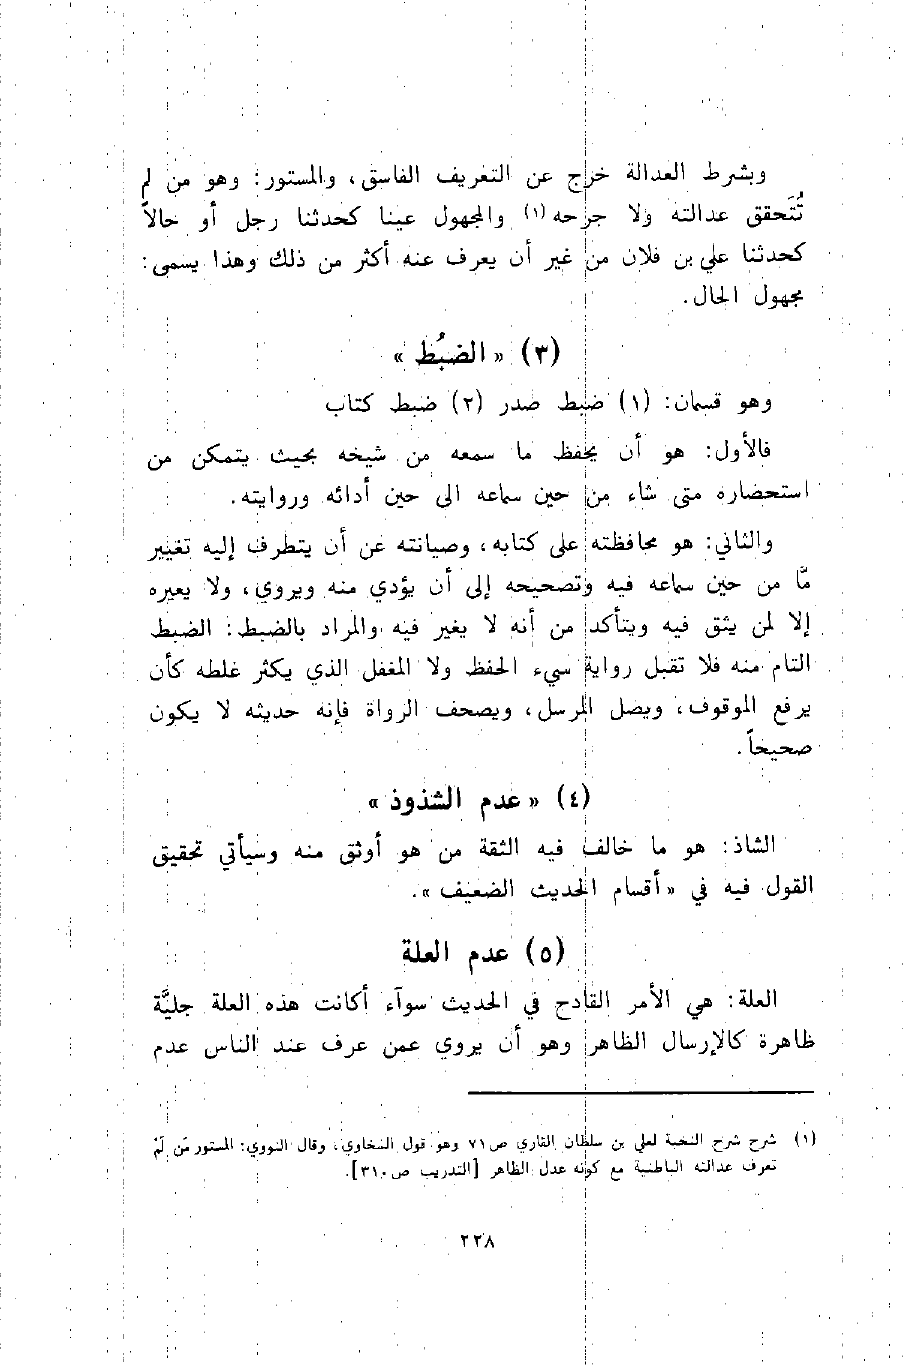 وبشرط العدالة خرج عن التعريف الفاسق، والمستور: وهو من لم
تُتَحقق عدالته ولا جرحه (١) والمجهول عينا كحدثنا رجل أو حالاً
كحدثنا علي بن فلان من غير أن يعرف عنه أكثر من ذلك وهذا يسمى:
مجهول الحال.
(٣) « الضبُط »
وهو قسمان: (١) ضبط صدر (٢) ضبط كتاب
فالأول: هو أن يحفظ ما سمعه من شيخه بحيث يتمكن من
استحضاره متى شاء من حين سماعه الى حين أدائه وروايته.
والثاني: هو محافظته على كتابه، وصيانته عن أن يتطرف إليه تغيير
مَّا من حين سماعه فيه وتصحيحه إلى أن يؤدي منه ويروي، ولا يعيره
إلا لمن يثق فيه ويتأكد من أنه لا يغير فيه والمراد بالضبط: الضبط
التام منه فلا تقبل رواية سيء الحفظ ولا المغفل الذي يكثر غلطه كأن
يرفع الموقوف، ويصل المرسل، ويصحف الرواة فإنه حديثه لا يكون
صحيحاً.
(٤) « عدم الشذوذ »
الشاذ: هو ما خالف فيه الثقة من هو أوثق منه وسيأتي تحقيق
القول فيه في « أقسام الحديث الضعيف ».
(٥) عدم العلة
العلة: هي الأمر القادح في الحديث سوآء أكانت هذه العلة جليَّة
ظاهرة كالإرسال الظاهر وهو أن يروي عمن عرف عند الناس عدم
(١) شرح شرح النخبة لعلي بن سلطان القاري ص٧١ وهو قول السخاوي، وقال النووي: المستور مَن لَمْ
تعرف عدالته الباطنية مع كونه عدل الظاهر [التدريب ص٣١٠].
٢٢٨